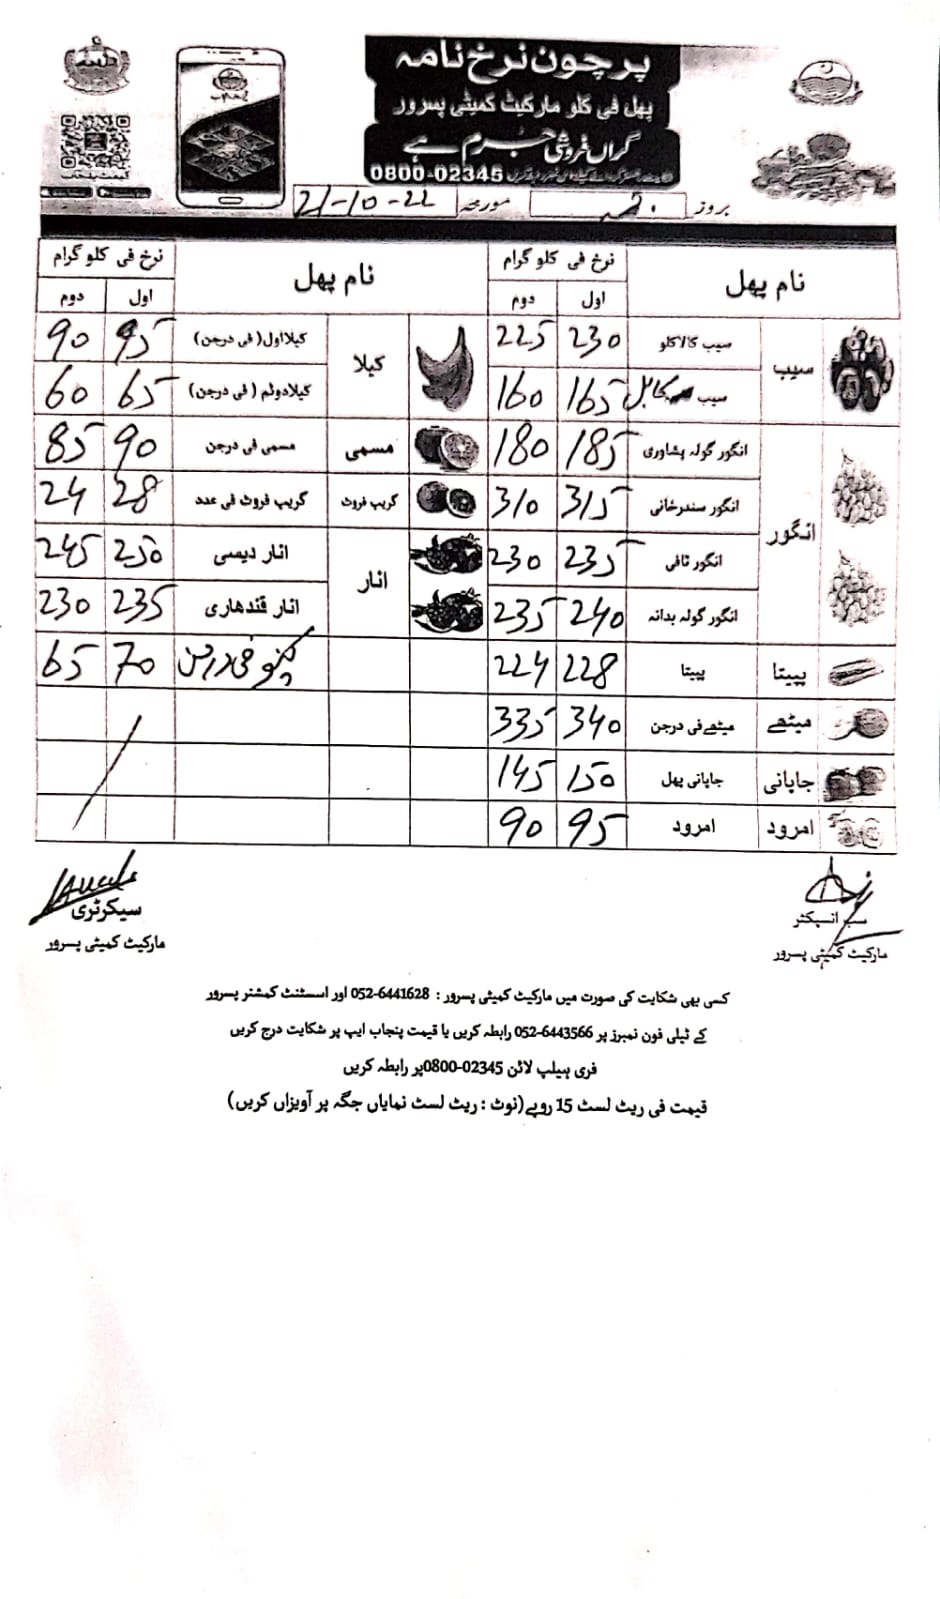 پرچون نرخ نامہ
پھل فی کلو مارکیٹ کمیٹی پسرور
گراں فروشی جرم ہے
0800-02345
بروز مورخہ 21-10-22
نام پھل نرخ فی کلو گرام نام پھل نرخ فی کلو گرام
اول دوم اول دوم
سیب سیب کالاکلو 230 225 کیلا کیلااول( فی درجن) 95 90
سیب کابل 165 160 کیلادوئم ( فی درجن) 65 60
انگور انگور گولہ پشاوری 185 180 مسمی مسمی فی درجن 90 85
انگور سندرخانی 315 310 گریپ فروٹ گریپ فروٹ فی عدد 28 24
انگور ٹافی 235 230 انار انار دیسی 250 245
انگور گولہ بدانہ 240 235 انار قندھاری 235 230
پپیتا پپیتا 228 224 کینو فی درجن 70 65
میٹھے میٹھے فی درجن 340 335
جاپانی جاپانی پھل 150 145
امرود امرود 95 90
سب انسپکٹر سیکرٹری
مارکیٹ کمیٹی پسرور مارکیٹ کمیٹی پسرور
کسی بھی شکایت کی صورت میں مارکیٹ کمیٹی پسرور : 6441628-052 اور اسسٹنٹ کمشنر پسرور
کے ٹیلی فون نمبرز پر 6443566-052 رابطہ کریں یا قیمت پنجاب ایپ پر شکایت درج کریں
فری ہیلپ لائن 02345-0800پر رابطہ کریں
قیمت فی ریٹ لسٹ 15 روپے(نوٹ : ریٹ لسٹ نمایاں جگہ پر آویزاں کریں)